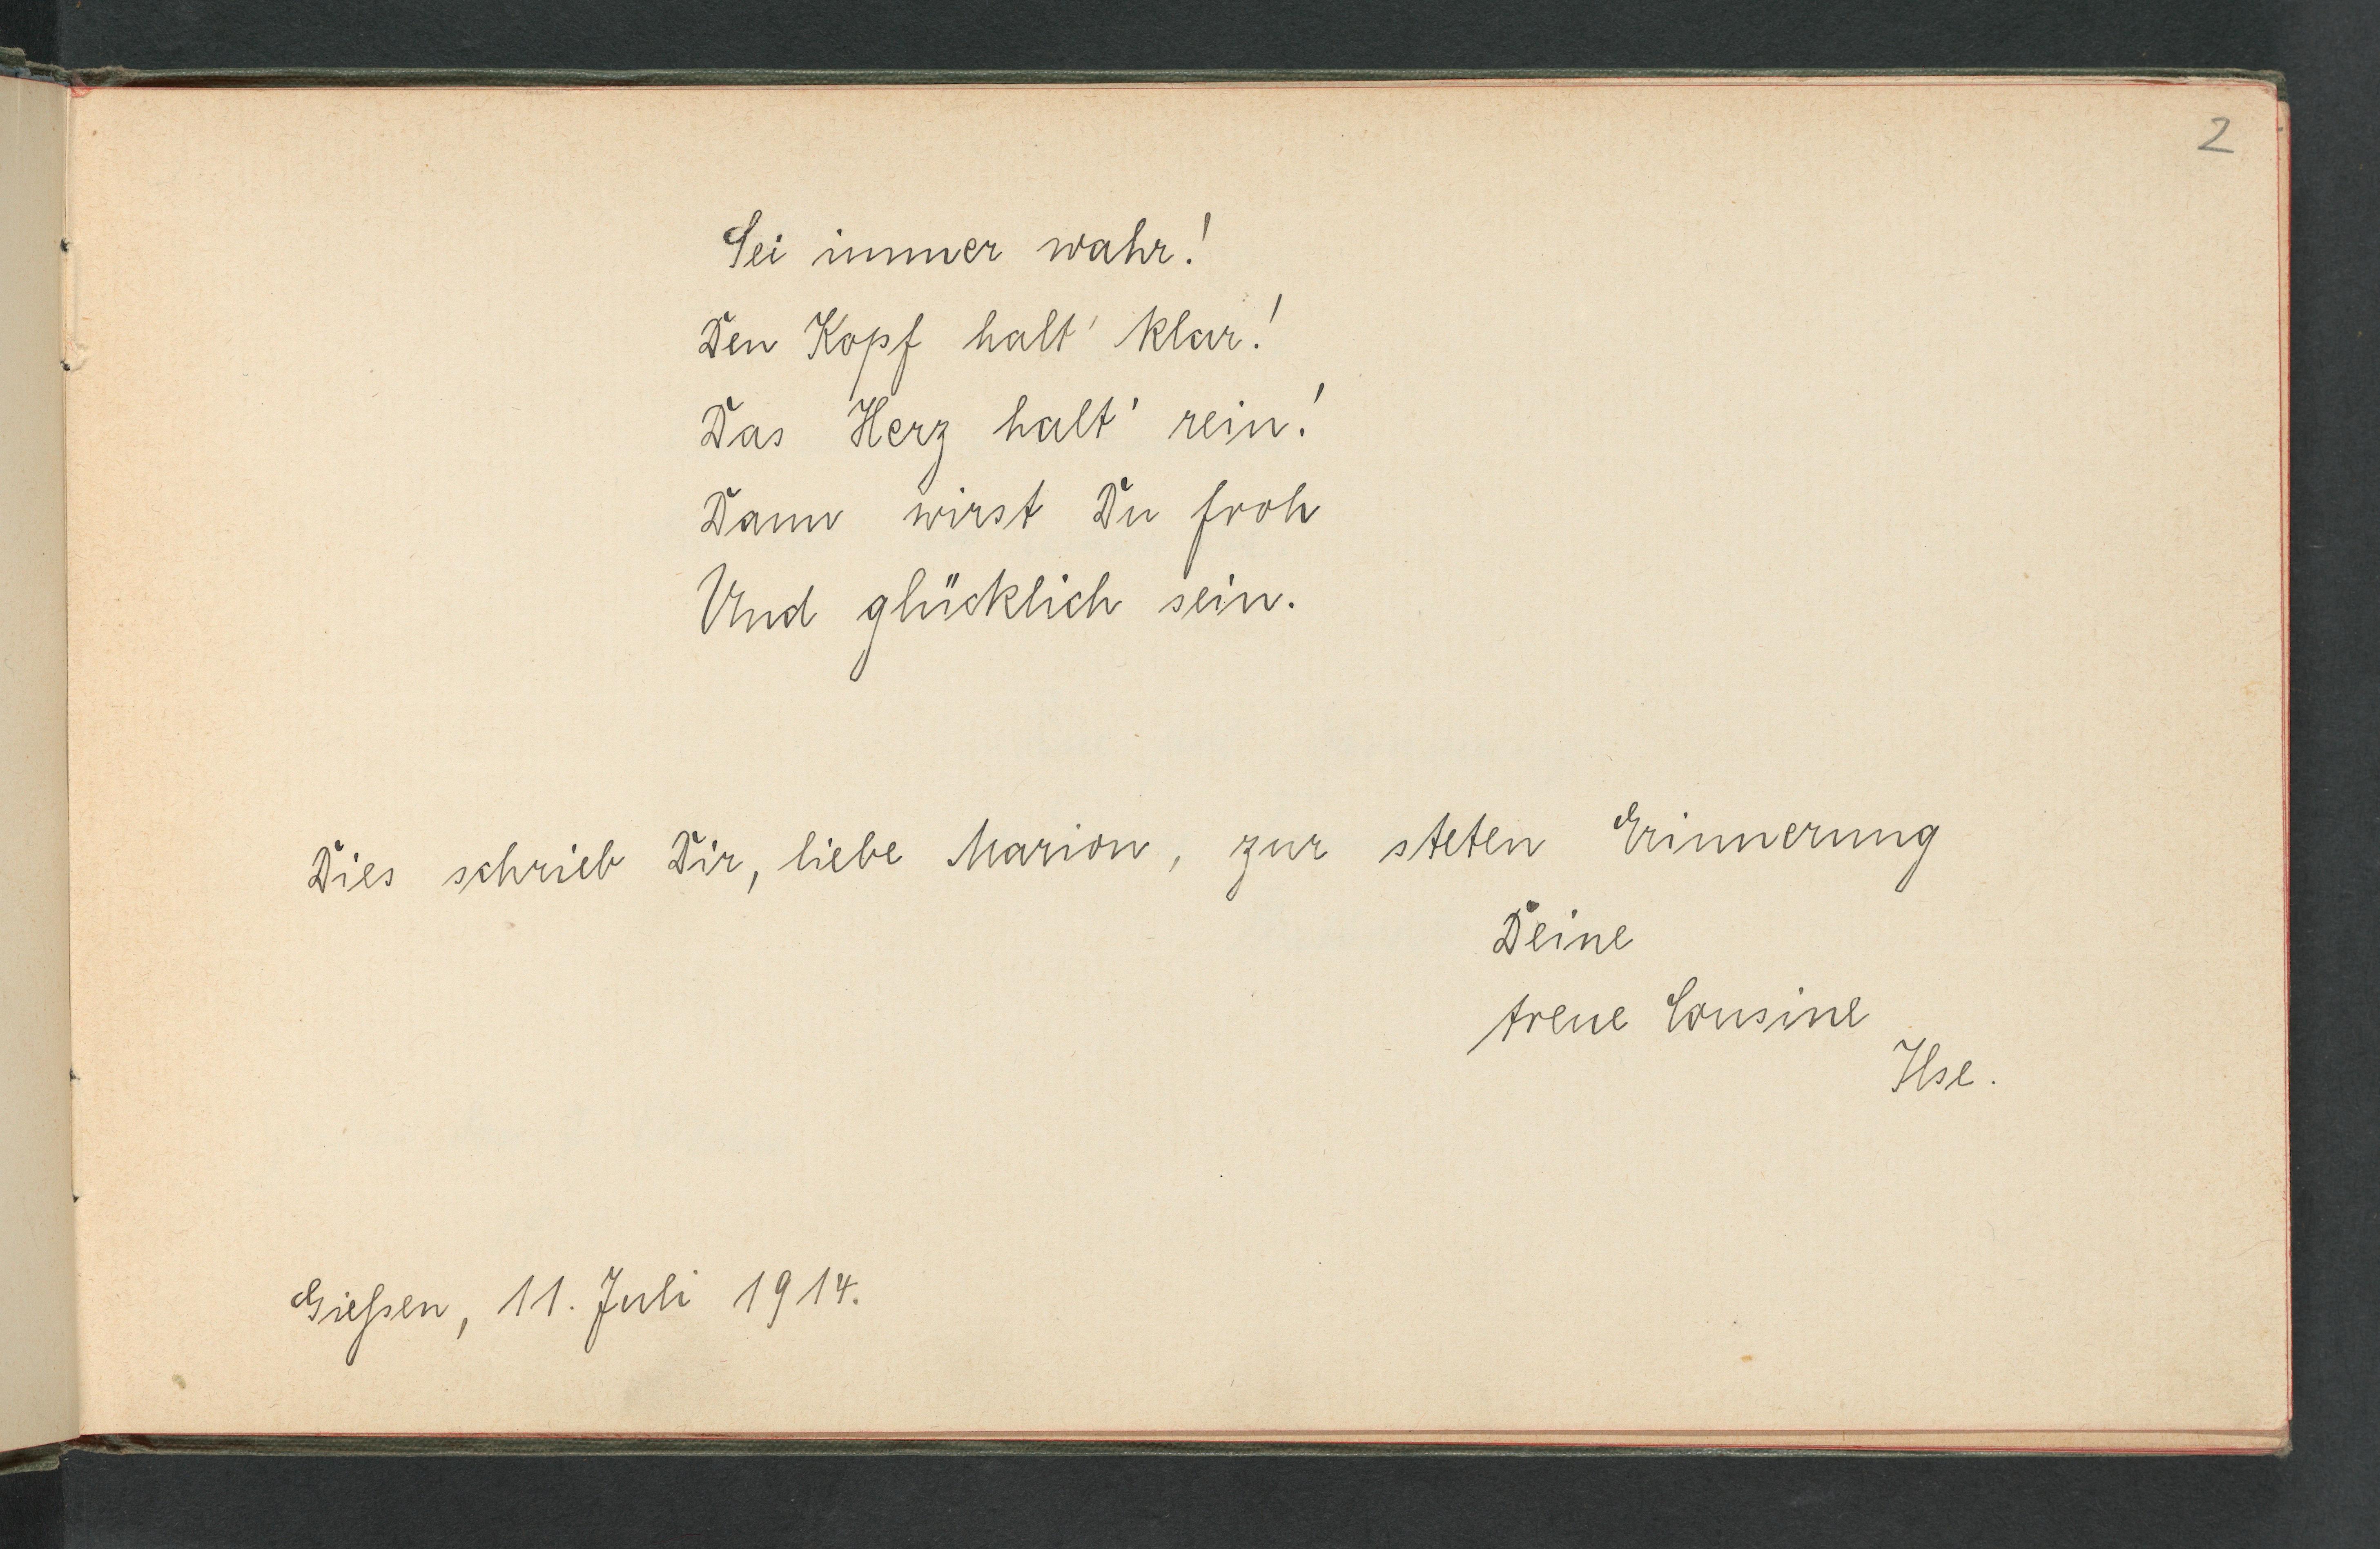 2
Sei immer wahr!
Den Kopf halt' klar!
Das Herz halt' rein!
Dann wirst Du froh
Und glücklich sein.
Dies schrieb Dir, liebe Marion, zur steten Erinnerung
Deine
treue Cousine
Ilse.
Gießen, 11. Juli 1914.